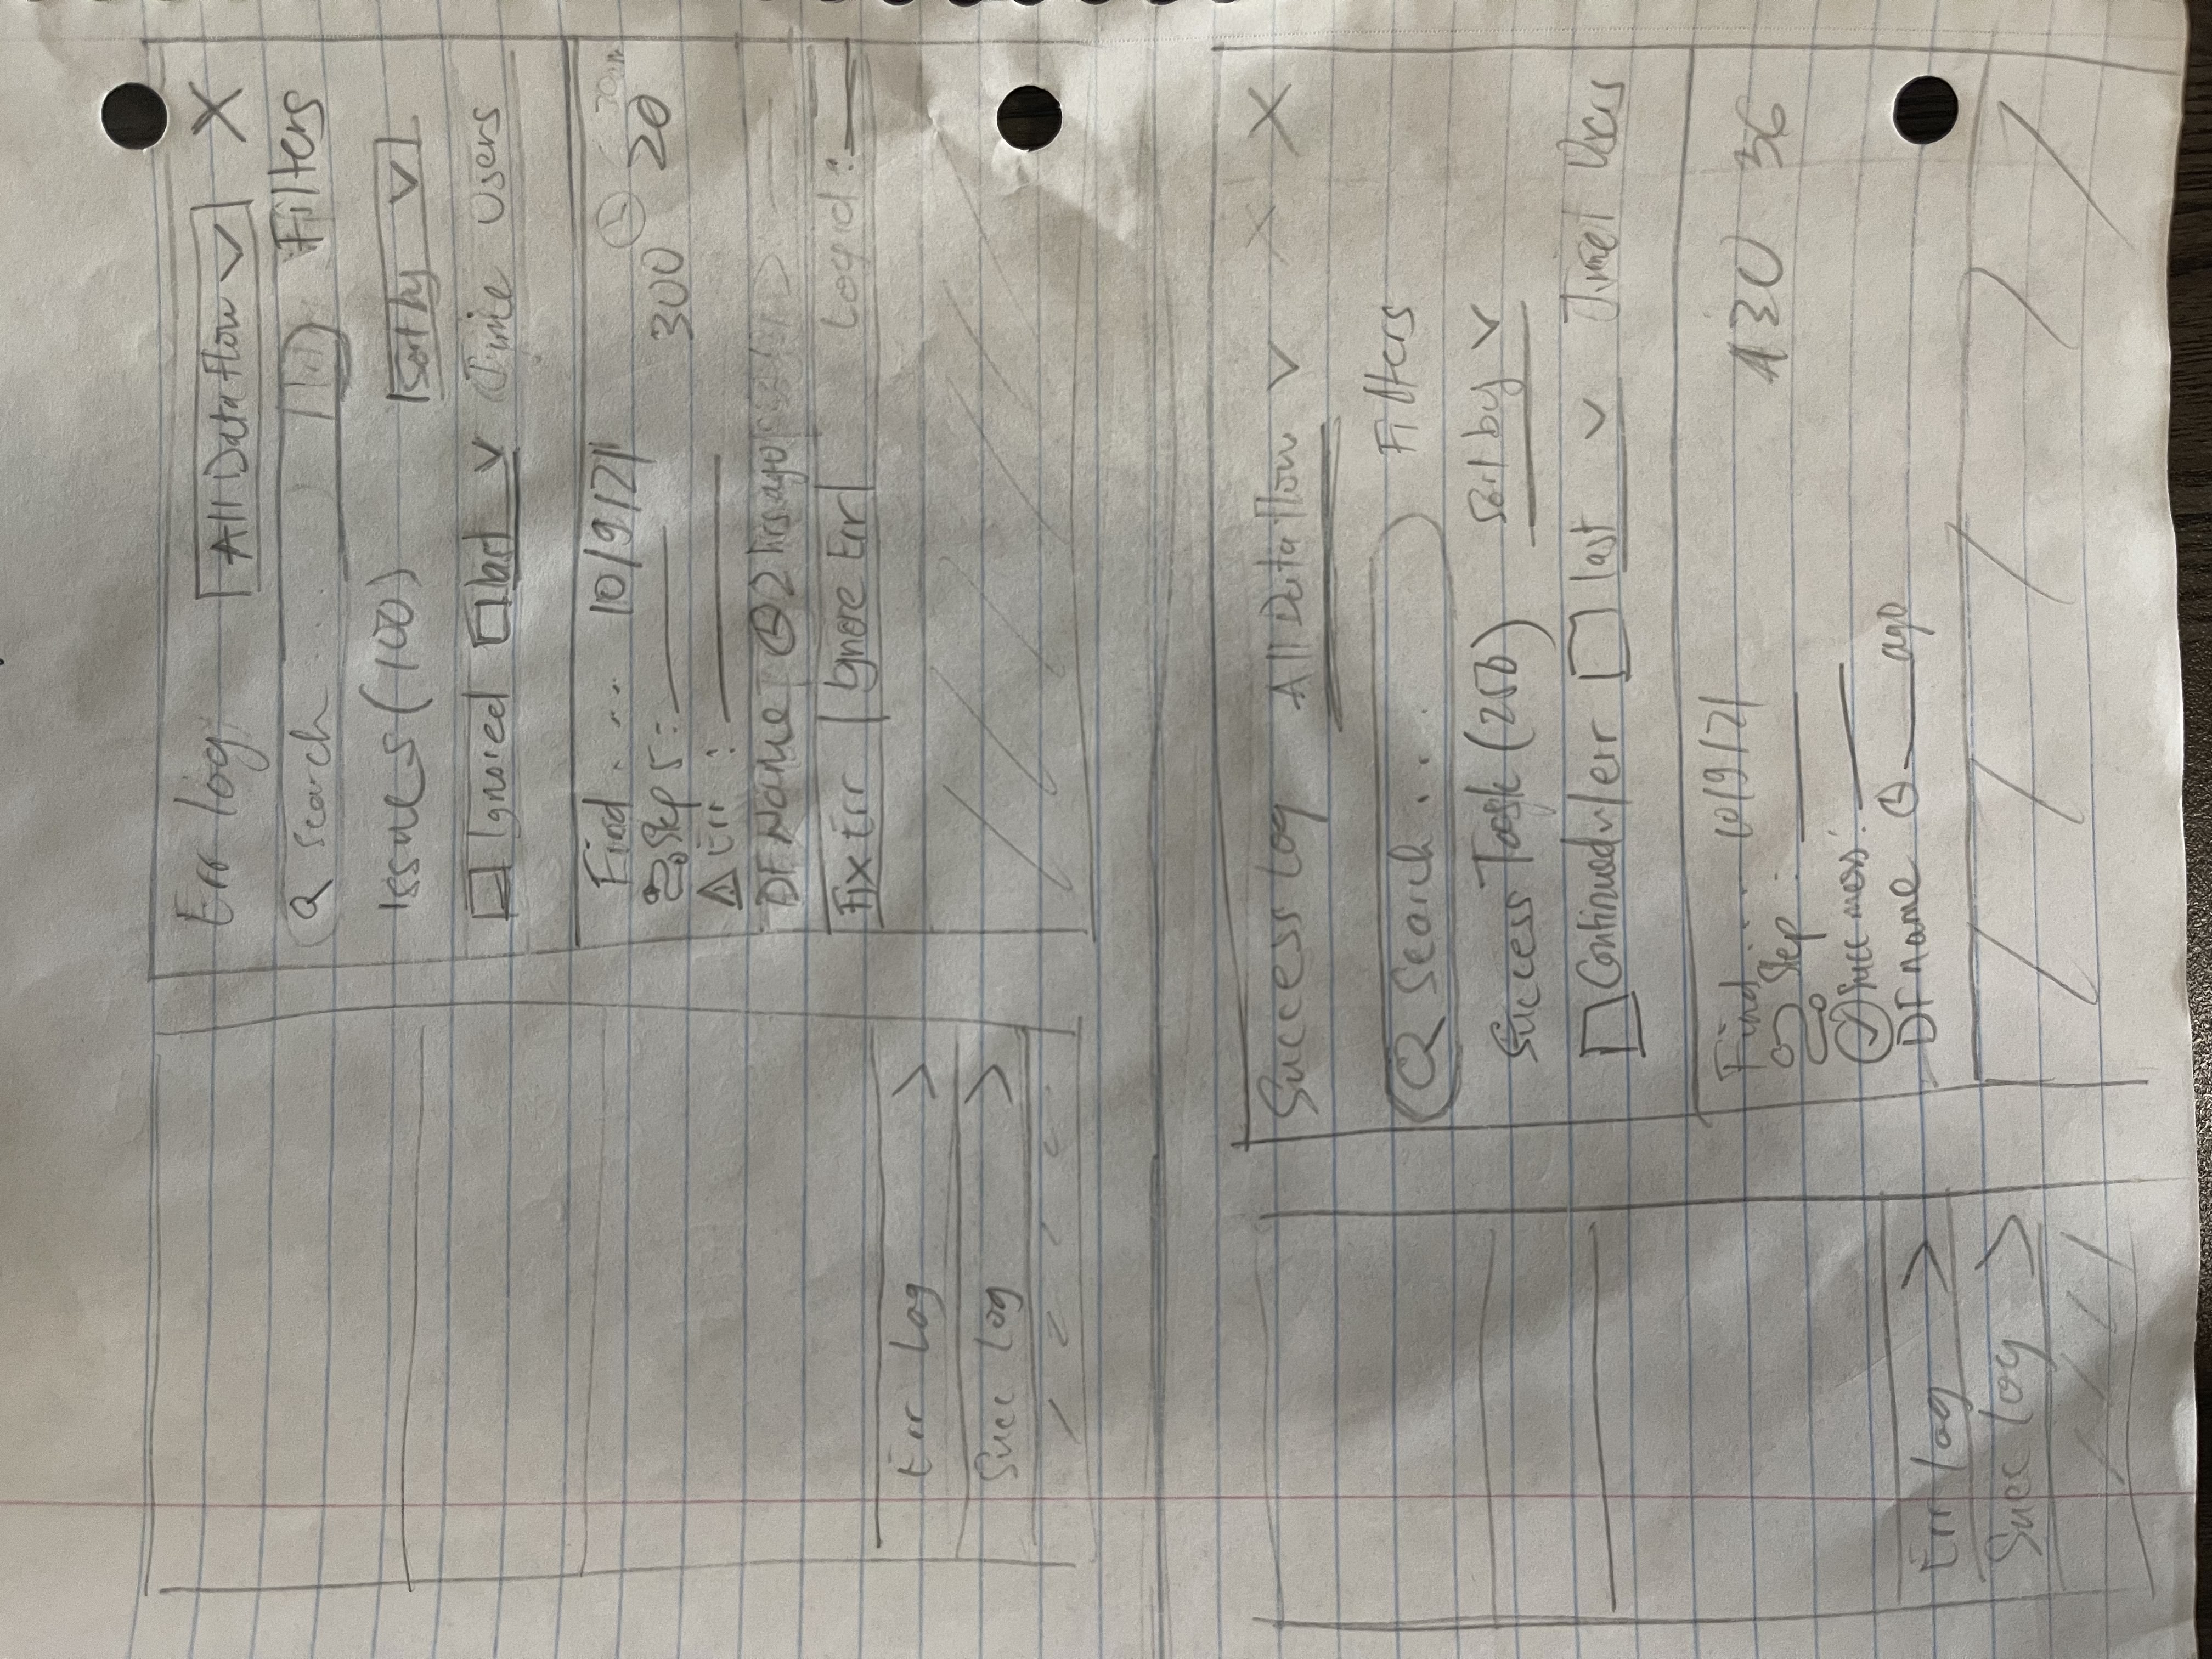 Err log All Data flow X
Q Search... Filters
Issues (100) Sort by
Ignored last Time Users
Find.... 10/9/21 30am
Step 5: 300 20
Err:
DF Name 2 hrs ago
Fix Err Ignore Err Log id:
Err Log >
Succ Log >
Success Log All Data flow X
Q Search... Filters
Success Task (250) Sort by
Continued w/err last Time Users
Find... 10/9/21 430 36
Step:
Succ mess:
DF name ago
Err log >
Succ log >